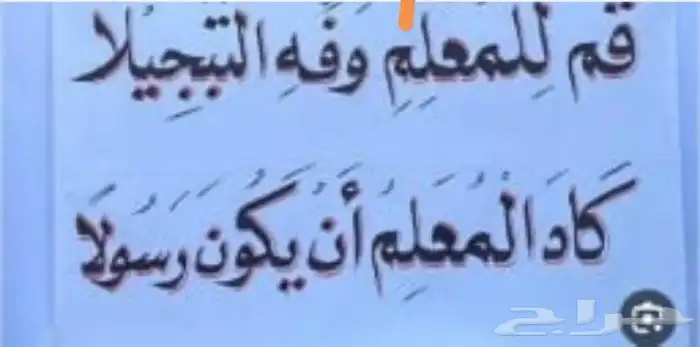 قم لِلمُعلِمِ وَفِّهِ التَّبجِيلا
كَادَ المُعَلِمُ أَن يَكُونَ رَسُولَا
حراج